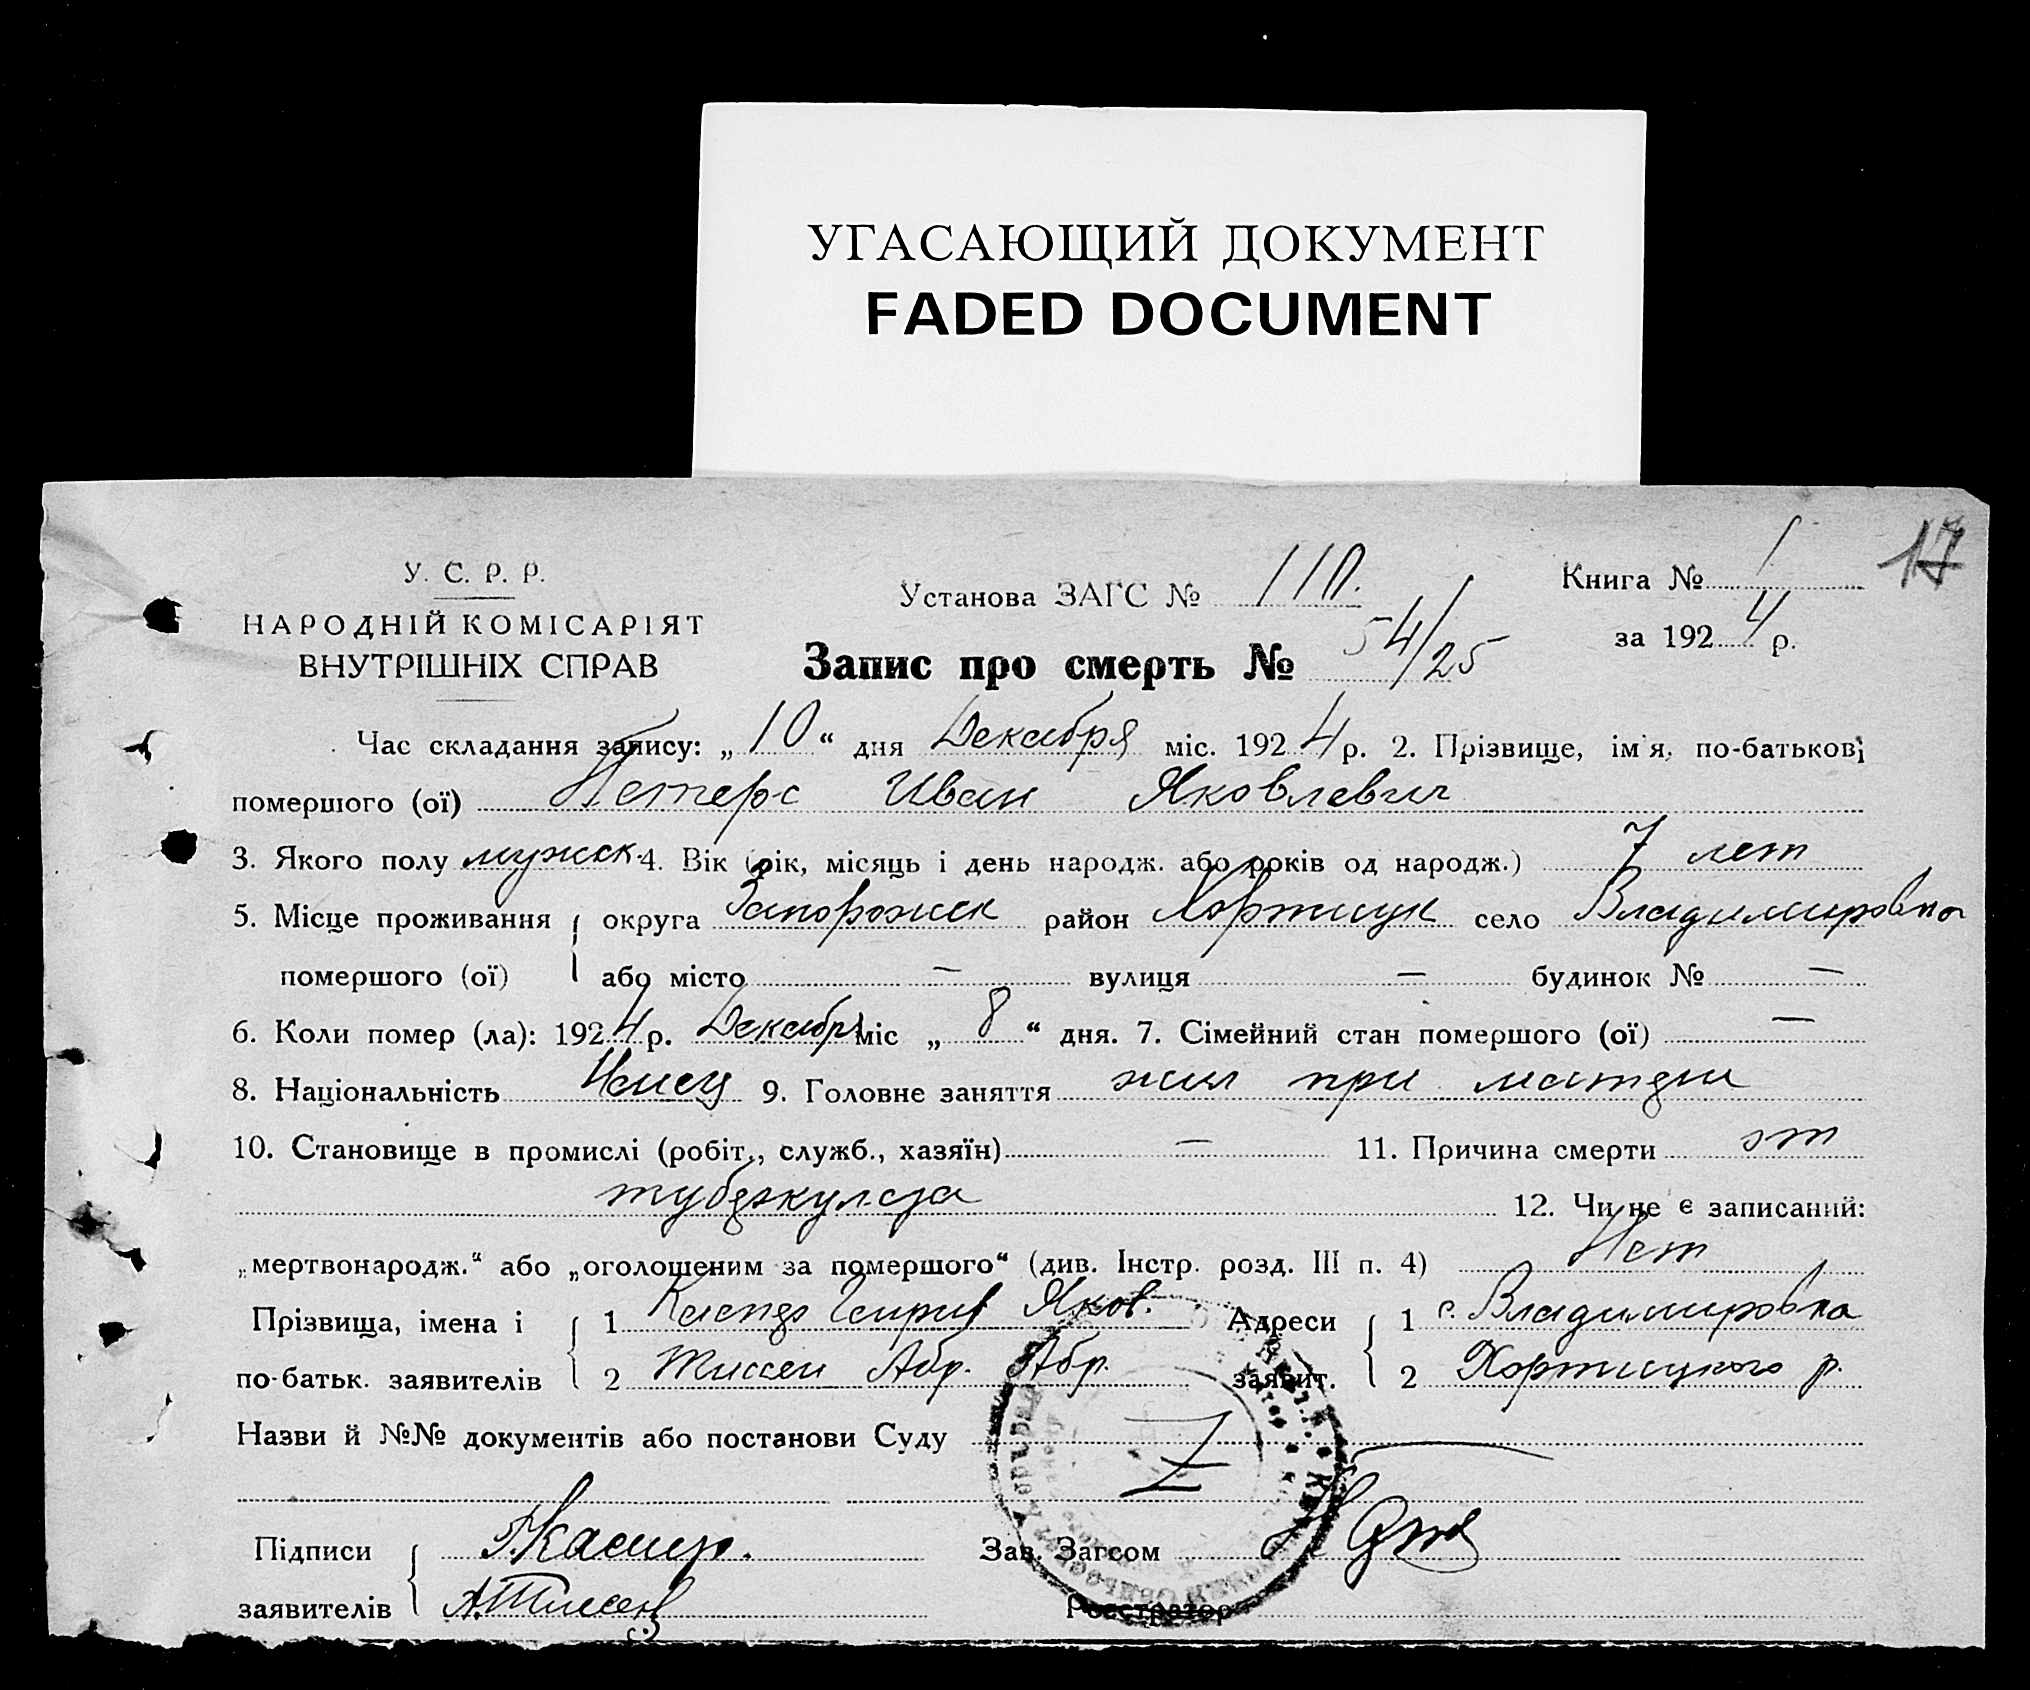 УГАСАЮЩИЙ ДОКУМЕНТ
FADED DOCUMENT
17
У. С. Р. Р.
НАРОДНІЙ КОМІСАРІЯТ
ВНУТРІШНІХ СПРАВ
Установа ЗАГС № 110.
Книга № 1
за 1924 р.
Запис про смерть № 54/25
Час складання запису: „10“ дня Декабря міс. 1924 р. 2. Прізвище, ім'я, по-батькові
помершого (ої) Петерс Иван Яковлевич
3. Якого полу мужск. 4. Вік (рік, місяць і день народж. або років од народж.) 7 лет
5. Місце проживання { округа Запорожск район Хортицк село Владимировка
помершого (ої) або місто — вулиця — будинок № —
6. Коли помер (ла): 1924 р. Декабря міс „8“ дня. 7. Сімейний стан помершого (ої) —
8. Національність Немец 9. Головне заняття жил при матери
10. Становище в промислі (робіт., служб., хазяїн) — 11. Причина смерти от
туберкулеза 12. Чи не є записаний:
„мертвонародж.“ або „оголошеним за помершого“ (див. Інстр. розд. III п. 4) Нет
Прізвища, імена і { 1 Яков. Адреси { 1 с. Владимировка
по-батьк. заявителів 2 Тиссен Абр. Абр. заявит. 2 Хортицкого р.
Назви й №№ документів або постанови Суду
Підписи { Зав. Загсом
заявителів А. Тиссен Реєстратор